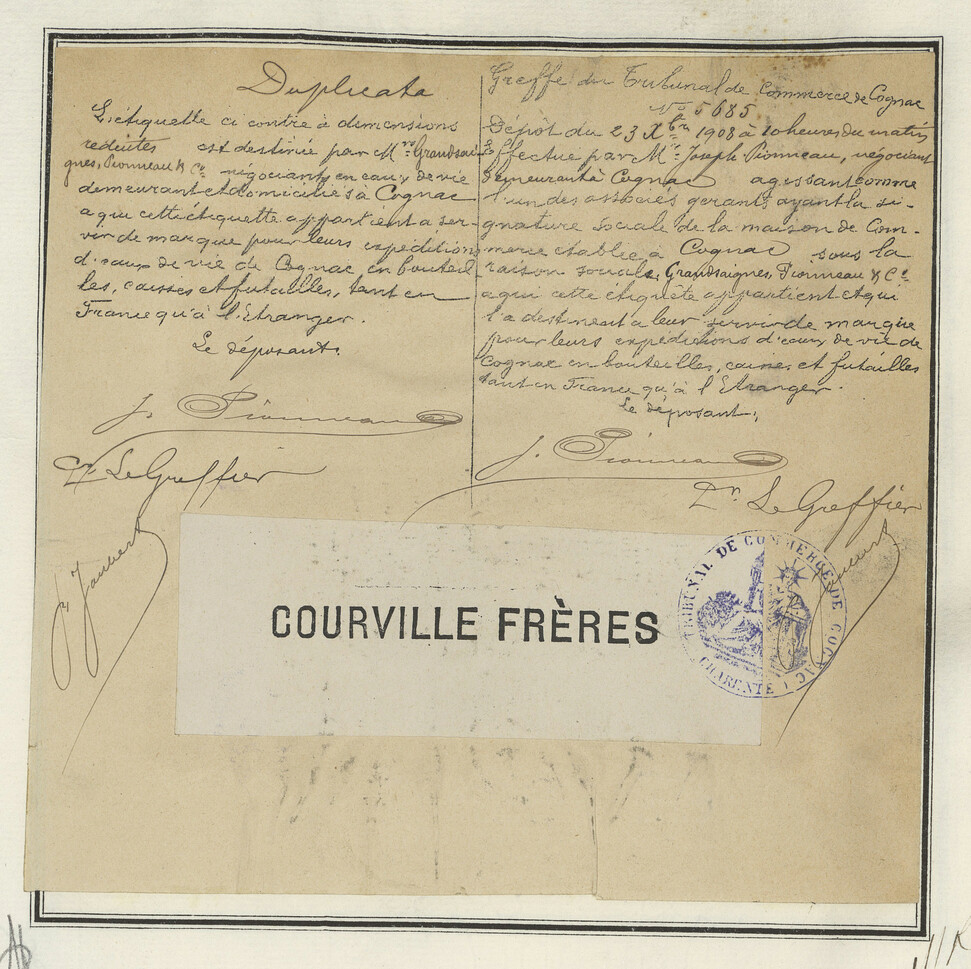 Duplicata
L'étiquette ci contre à dimensions
réduites est destinée par Mrs Grandsai-
gnes, Pionneau & Cie négociants en eaux de vie
demeurant et domiciliés à Cognac
a qui cette étiquette appartient a ser-
vir de marque pour leurs expéditions
d'eaux de vie de Cognac en bouteil-
les, caisses et futailles, tant en
France qu'à l'Etranger.
Le déposant.
J. Pionneau
Dr Le Greffier
Greffe du Tribunal de Commerce de Cognac
No 5685
Dépôt du 23 Xbre 1908 à 10 heures du matin
Effectué par Mr Joseph Pionneau, négociant
demeurant à Cognac agissant comme
l'un des associés gérants ayant la si-
gnature sociale de la maison de Com-
merce établie à Cognac sous la
raison sociale, Grandsaignes, Pionneau & Cie
a qui cette étiquête appartient et qui
l'a destinent a leur servir de marque
pour leurs expéditions d'eaux de vie de
Cognac en bouteilles, caisses et futailles
tant en France qu'à l'Etranger.
Le déposant,
J. Pionneau
Dr Le Greffier
COURVILLE FRÈRES
TRIBUNAL DE COMMERCE DE COGNAC
CHARENTE